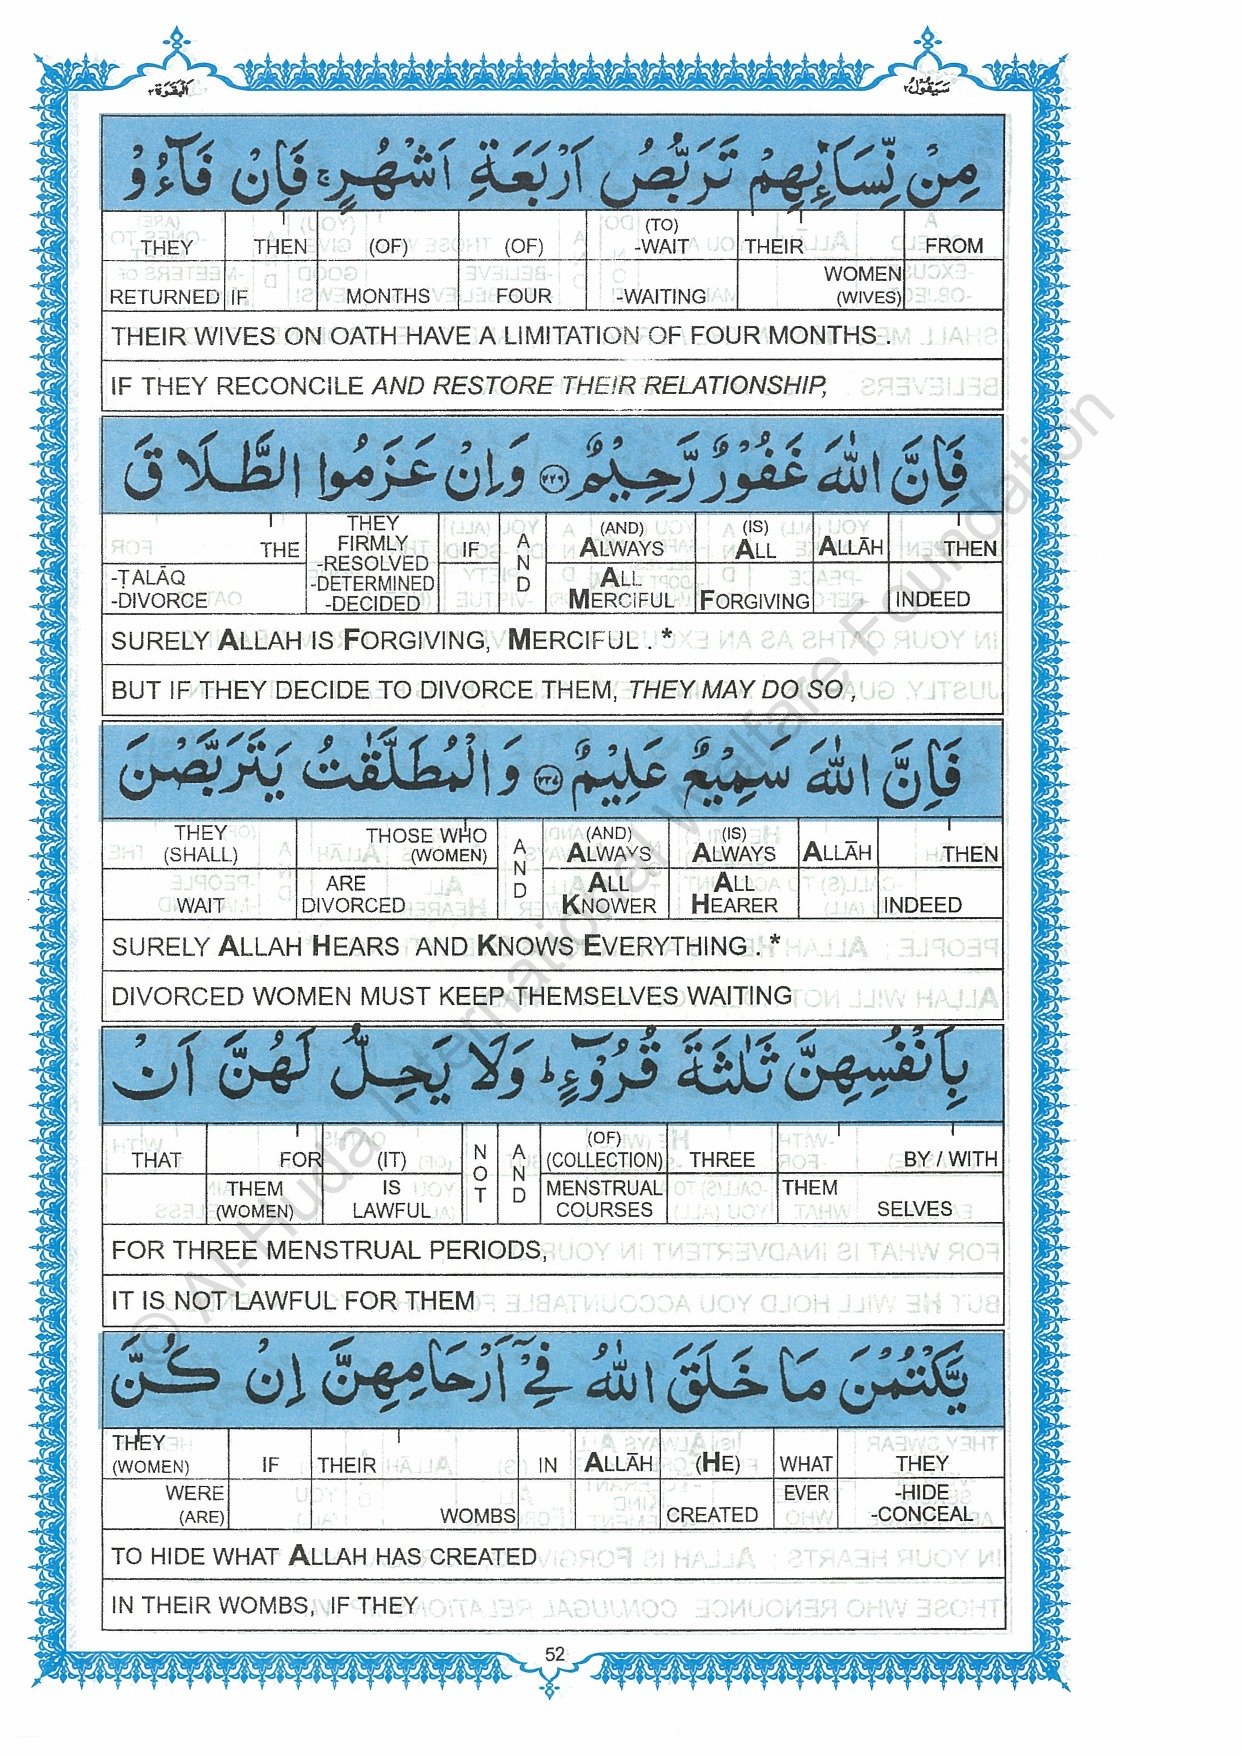 البقرة ٢
سيقول ٢
مِنْ نِّسَآئِهِمْ تَرَبُّصُ اَرْبَعَةِ اَشْهُرٍ ۚ فَاِنْ فَآءُوْ
THEY THEN (OF) (OF) (TO) -WAIT THEIR FROM
RETURNED IF MONTHS FOUR -WAITING WOMEN (WIVES)
THEIR WIVES ON OATH HAVE A LIMITATION OF FOUR MONTHS .
IF THEY RECONCILE AND RESTORE THEIR RELATIONSHIP,
فَاِنَّ اللّٰهَ غَفُوْرٌ رَّحِيْمٌ ﴿٢٢٦﴾ وَاِنْ عَزَمُوا الطَّلَاقَ
THE THEY FIRMLY -RESOLVED -DETERMINED -DECIDED IF AND (AND) ALWAYS (IS) ALL ALLĀH THEN
-ṬALĀQ -DIVORCE ALL MERCIFUL FORGIVING INDEED
SURELY ALLAH IS FORGIVING, MERCIFUL . *
BUT IF THEY DECIDE TO DIVORCE THEM, THEY MAY DO SO ,
فَاِنَّ اللّٰهَ سَمِيْعٌ عَلِيْمٌ ﴿٢٢٧﴾ وَالْمُطَلَّقٰتُ يَتَرَبَّصْنَ
THEY (SHALL) THOSE WHO (WOMEN) AND (AND) ALWAYS (IS) ALWAYS ALLĀH THEN
WAIT ARE DIVORCED ALL KNOWER ALL HEARER INDEED
SURELY ALLAH HEARS AND KNOWS EVERYTHING . *
DIVORCED WOMEN MUST KEEP THEMSELVES WAITING
بِاَنْفُسِهِنَّ ثَلٰثَةَ قُرُوْٓءٍ ؕ وَلَا يَحِلُّ لَهُنَّ اَنْ
THAT FOR (IT) NOT AND (OF) (COLLECTION) THREE BY / WITH
THEM (WOMEN) IS LAWFUL MENSTRUAL COURSES THEM SELVES
FOR THREE MENSTRUAL PERIODS,
IT IS NOT LAWFUL FOR THEM
يَّكْتُمْنَ مَا خَلَقَ اللّٰهُ فِيْٓ اَرْحَامِهِنَّ اِنْ كُنَّ
THEY (WOMEN) IF THEIR IN ALLĀH (HE) WHAT THEY
WERE (ARE) WOMBS CREATED EVER -HIDE -CONCEAL
TO HIDE WHAT ALLAH HAS CREATED
IN THEIR WOMBS, IF THEY
52
© Al-Huda International Welfare Foundation